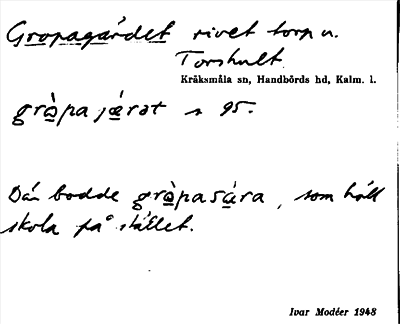 Gropagärdet rivet torp u.
Torshult
Kråksmåla sn, Handbörds hd, Kalm. l.
grò̱pajǽ̱rət s 95.
Där bodde grò̱pasá̱ra, som höll
skola på stället.
Ivar Modéer 1948